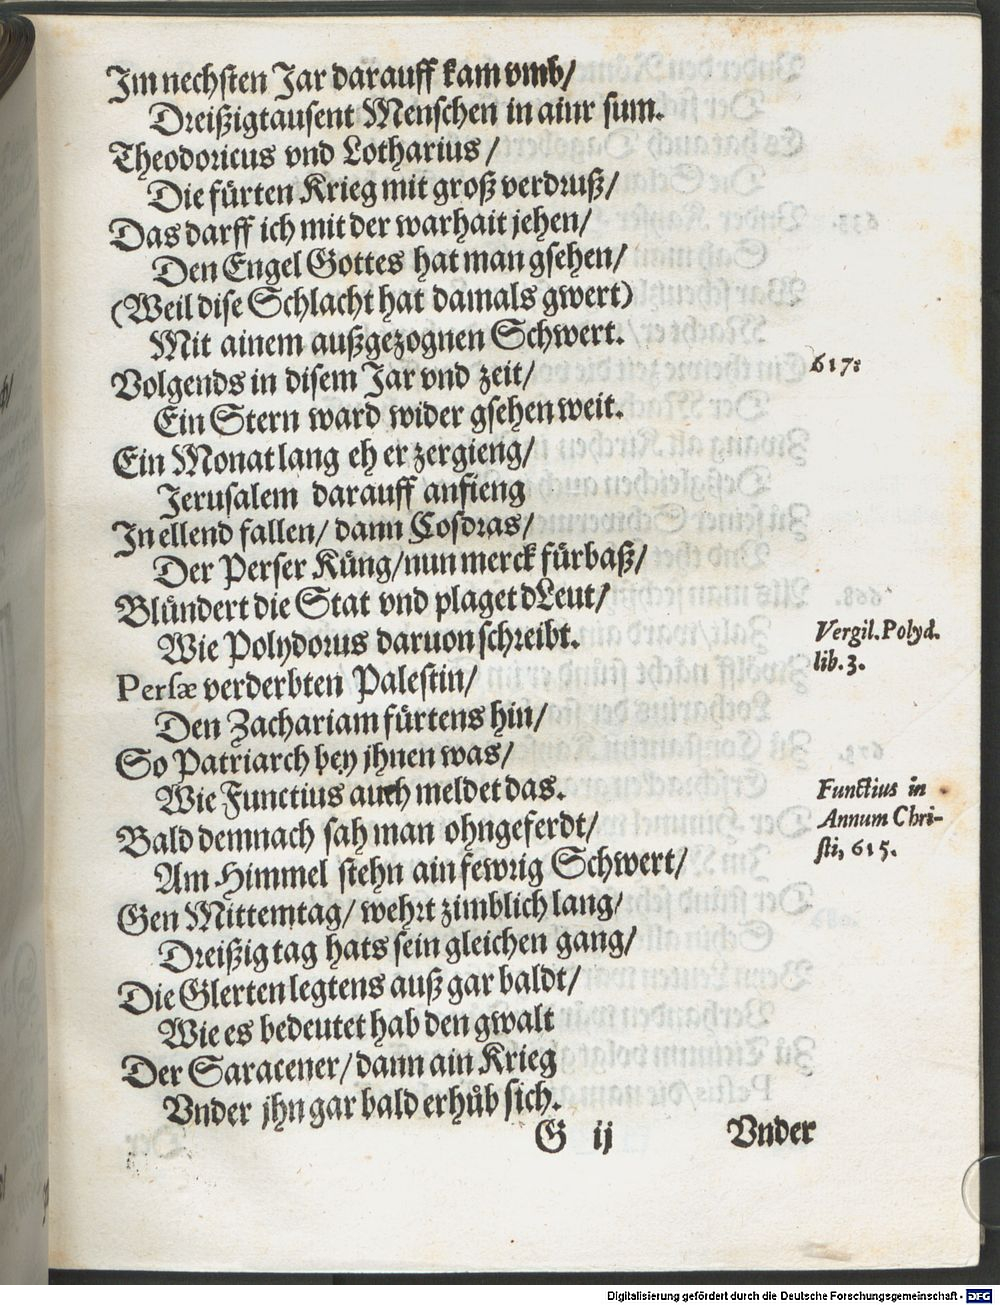 Im nechsten Jar darauff kam vmb/
Dreißigtausent Menschen in ainr sum.
Theodoricus vnd Lotharius /
Die fürten Krieg mit groß verdruß/
Das darff ich mit der warhait jehen/
Den Engel Gottes hat man gsehen/
(Weil dise Schlacht hat damals gwert)
Mit ainem außgezognen Schwert.
Volgends in disem Jar vnd zeit/
617:
Ein Stern ward wider gsehen weit.
Ein Monat lang eh er zergieng/
Jerusalem darauff anfieng
In ellend fallen/ dann Cosdras/
Der Perser Küng/nun merck fürbaß/
Blündert die Stat vnd plaget dLeut/
Wie Polydorus daruon schreibt.
Vergil. Polyd.
lib. 3.
Persæ verderbten Palestin/
Den Zachariam fürtens hin/
So Patriarch bey jhnen was/
Wie Functius auch meldet das.
Functius in
Annum Chri-
sti, 615.
Bald demnach sah man ohngeferdt/
Am Himmel stehn ain fewrig Schwert/
Gen Mittemtag/ wehrt zimblich lang/
Dreißig tag hats sein gleichen gang/
Die Glerten legtens auß gar baldt/
Wie es bedeutet hab den gwalt
Der Saracener/ dann ain Krieg
Vnder jhn gar bald erhůb sich.
G ij Vnder
Digitalisierung gefördert durch die Deutsche Forschungsgemeinschaft - DFG